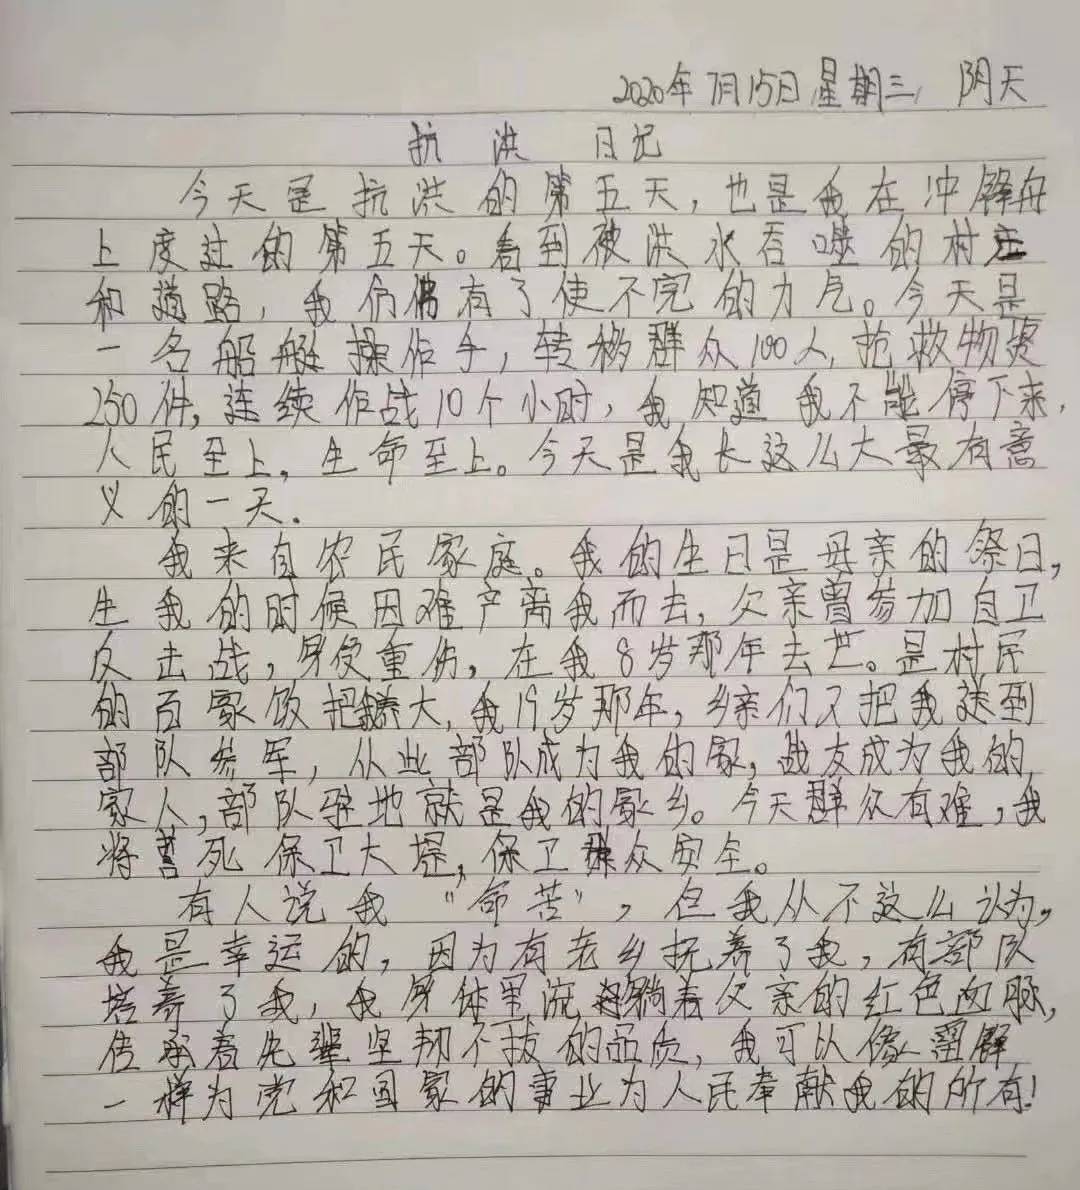 2020年7月15日星期三, 阴天
抗洪日记
今天是抗洪的第五天,也是我在冲锋舟
上度过的第五天。看到被洪水吞噬的村庄
和道路,我仿佛有了使不完的力气。今天是
一名船艇操作手,转移群众100人,抢救物资
250件,连续作战10个小时,我知道我不能停下来,
人民至上,生命至上。今天是我长这么大最有意
义的一天.
我来自农民家庭。我的生日是母亲的祭日,
生我的时候因难产离我而去,父亲曾参加自卫
反击战,身受重伤,在我8岁那年去世。是村民
的百家饭把我养大,我19岁那年,乡亲们又把我送到
部队参军,从此部队成为我的家,战友成为我的
家人,部队驻地就是我的家乡。今天群众有难,我
将誓死保卫大堤,保卫群众安全。
有人说我“命苦”,但我从不这么认为,
我是幸运的,因为有老乡抚养了我,有部队
培养了我,我身体里流淌着父亲的红色血脉,
传承着先辈坚韧不拔的品质,我可以像
一样为党和国家的事业为人民奉献我的所有!